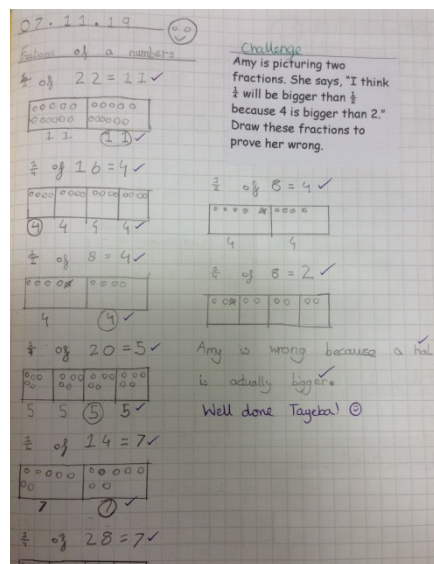 07.11.19
Fractions of a numbers
½ of 22 = 11
11 11
¼ of 16 = 4
4 4 4 4
½ of 8 = 4
4 4
¼ of 20 = 5
5 5 5 5
½ of 14 = 7
7 7
¼ of 28 = 7
Challenge
Amy is picturing two
fractions. She says, "I think
¼ will be bigger than ½
because 4 is bigger than 2."
Draw these fractions to
prove her wrong.
½ of 8 = 4
4 4
¼ of 8 = 2
Amy is wrong because a hal
is actually bigger.
Well done Tayeba!